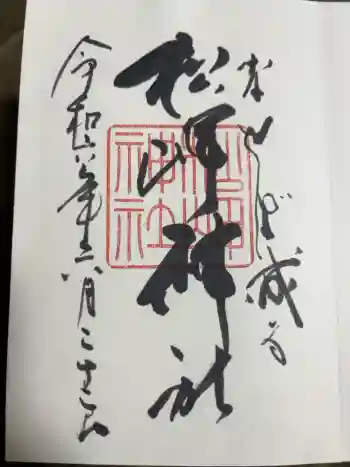 なせば成る
松岬神社
松岬
神社
令和六年 月二十 日